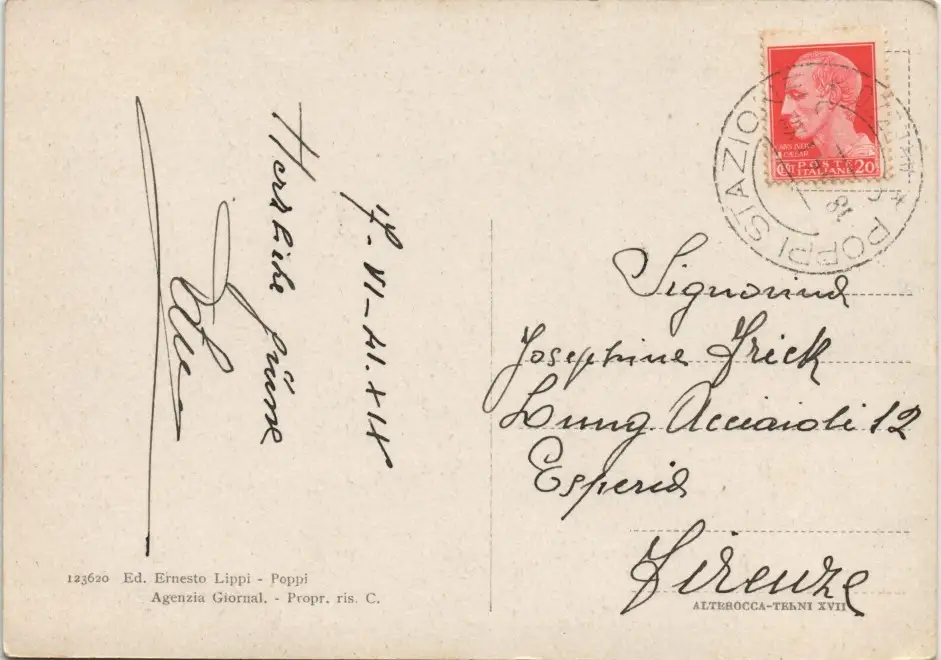 17. VI - 41. XIX
Herzliche Grüsse
Signorina
Josephine Frick
Lung. Acciaioli 12
Esperia
Firenze
POSTE
ITALIANE 20
POPPI STAZIONE
123620 Ed. Ernesto Lippi - Poppi
Agenzia Giornal. - Propr. ris. C.
ALTEROCCA-TERNI XVII